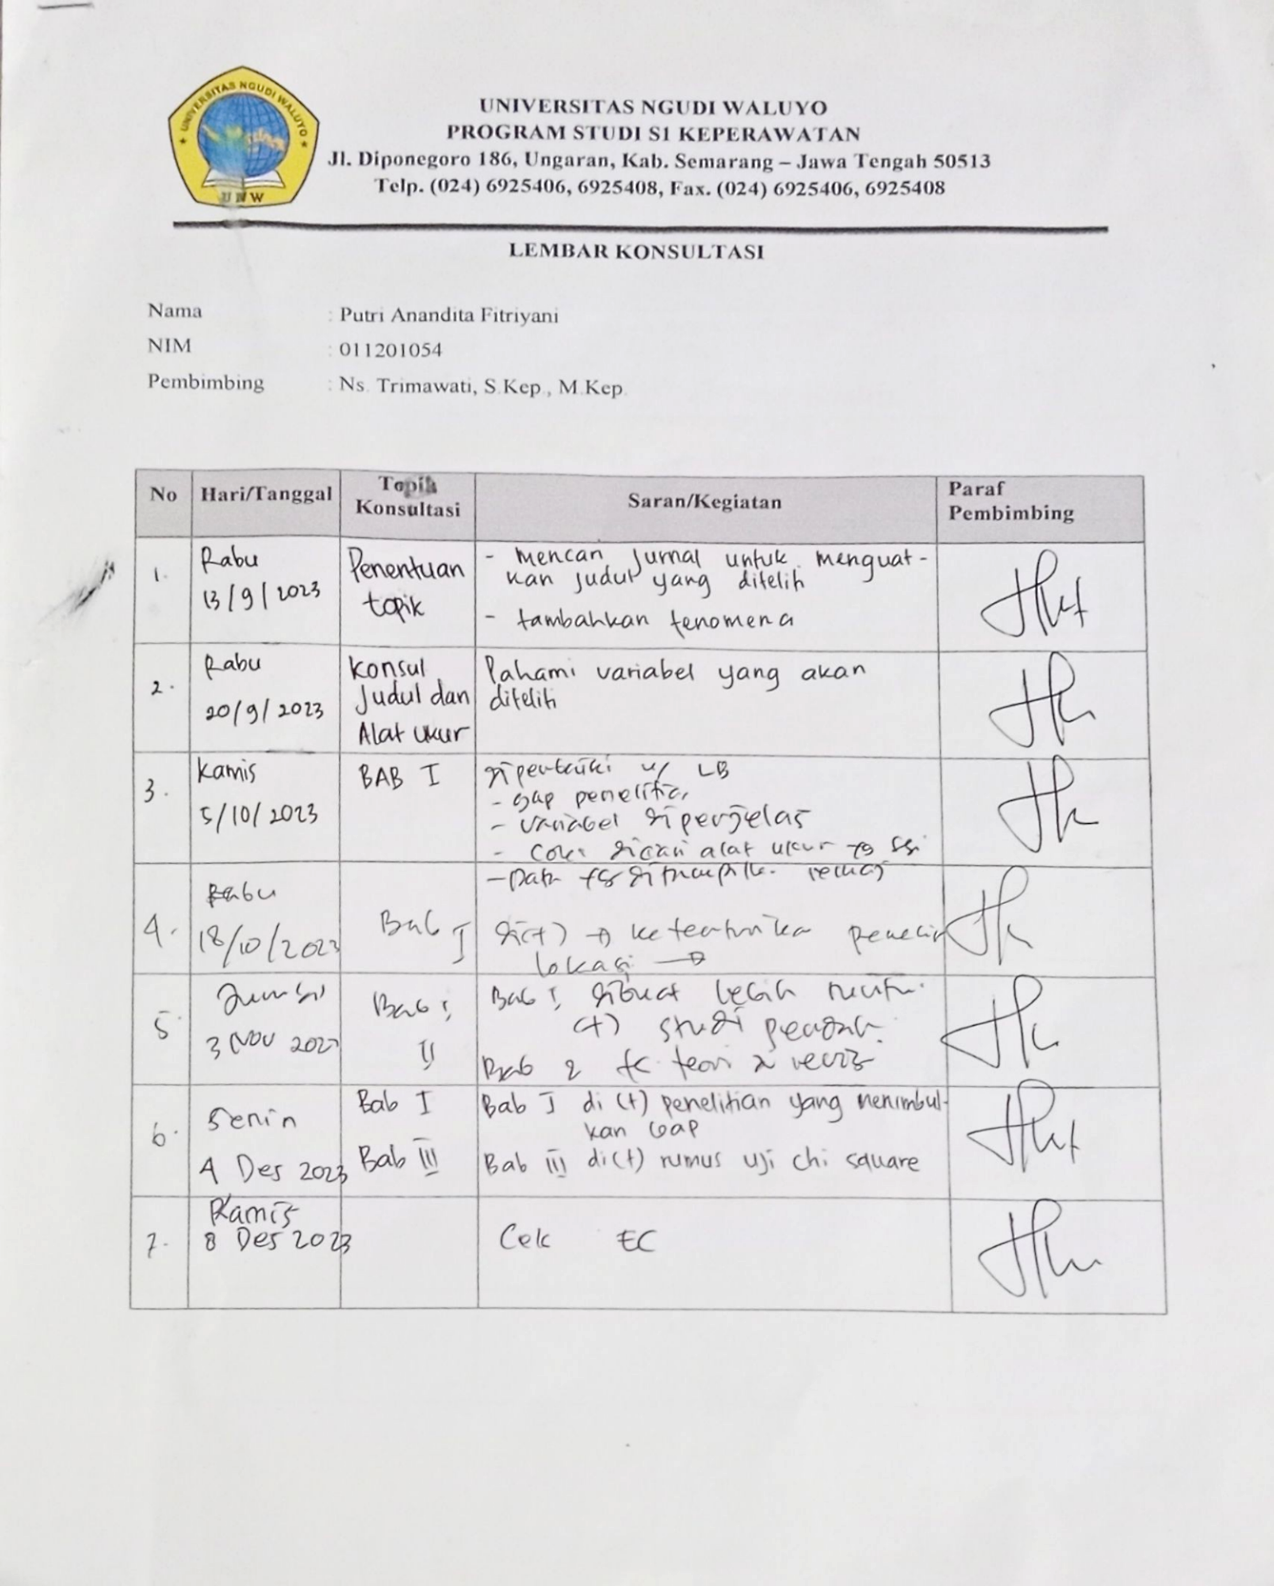 UNIVERSITAS NGUDI WALUYO
UNW
UNIVERSITAS NGUDI WALUYO
PROGRAM STUDI S1 KEPERAWATAN
Jl. Diponegoro 186, Ungaran, Kab. Semarang – Jawa Tengah 50513
Telp. (024) 6925406, 6925408, Fax. (024) 6925406, 6925408
LEMBAR KONSULTASI
Nama : Putri Anandita Fitriyani
NIM : 011201054
Pembimbing : Ns. Trimawati, S.Kep., M.Kep.
No Hari/Tanggal Topik Konsultasi Saran/Kegiatan Paraf Pembimbing
1. Rabu 13/9/2023 Penentuan topik
- Mencari Jurnal untuk menguat-
kan judul yang diteliti
- tambahkan fenomena
2. Rabu 20/9/2023 Konsul Judul dan Alat ukur
Pahami variabel yang akan
diteliti
3. Kamis 5/10/2023 BAB I
diperbaiki LB
- gap penelitian
- variabel diperjelas
- dicari alat ukur
4. Rabu 18/10/2023 Bab I
- Data
di(+) →
lokasi →
5. Jumat 3 Nov 2023 Bab I, II
Bab I, dibuat lebih
(+) studi
Bab 2 teori
6. Senin 4 Des 2023 Bab I Bab III
Bab I di(+) penelitian yang menimbul-
kan Gap
Bab III di(+) rumus uji chi square
7. Kamis 8 Des 2023
Cek EC